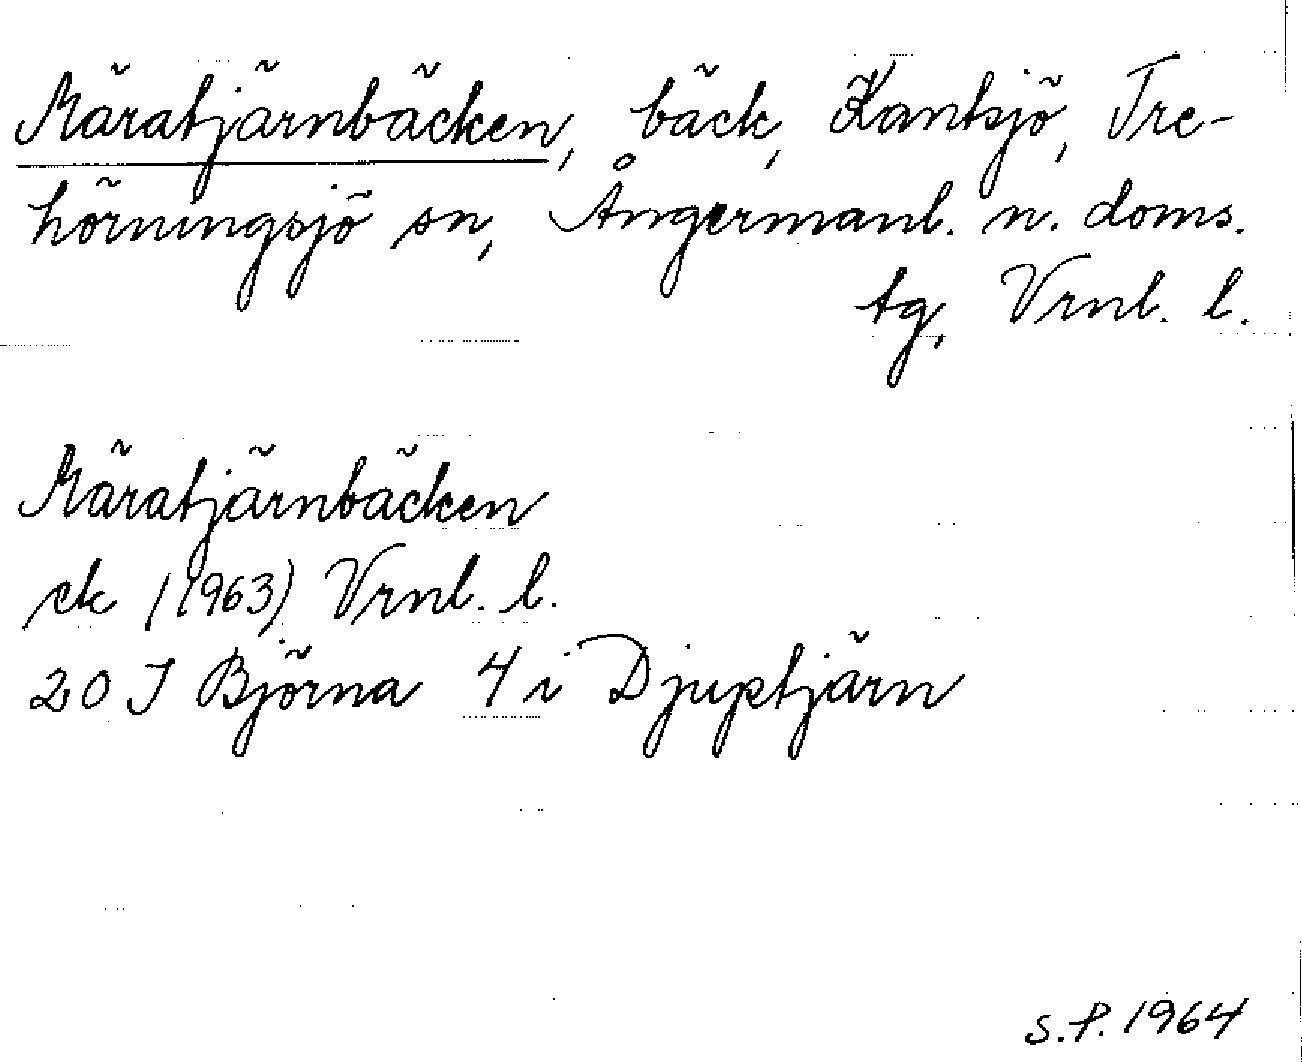 Märatjärnbäcken, bäck, Kantsjö, Tre-
hörningsjö sn, Ångermanl. n. doms.
tg, Vrnl. l.
Märatjärnbäcken
ek (1963) Vrnl. l.
20 J Björna 4 i Djuptjärn
S.P. 1964